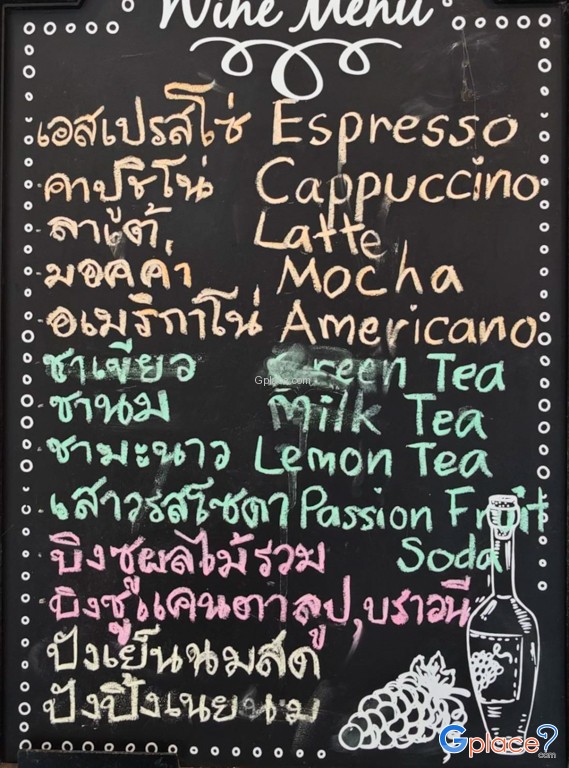 Wine Menu
เอสเปรสโซ่ Espresso
คาปูชิโน่ Cappuccino
ลาเต้ Latte
มอคค่า Mocha
อเมริกาโน่ Americano
ชาเขียว Green Tea
ชานม Milk Tea
ชามะนาว Lemon Tea
เสาวรสโซดา Passion Fruit
Soda
บิงซูผลไม้รวม
บิงซูแคนตาลูป,บราวนี่
ปังเย็นนมสด
ปังปิ้งเนยนม
Gplace.com
Gplace?.com